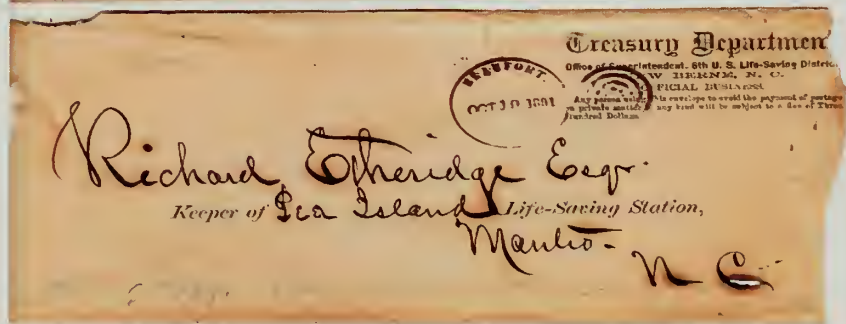 Treasury Departmen
Office of Superintendent, 6th U. S. Life-Saving Distric
W BERNE, N. C.
FICIAL BUSINESS.
Any person using this envelope to avoid the payment of postage
on private matter any kind will be subject to a fine of Three
Hundred Dollars.
BEAUFORT.
OCT 10 1891
Richard Etheridge Esqr.
Keeper of Pea Island Life-Saving Station,
Manteo-
N C.